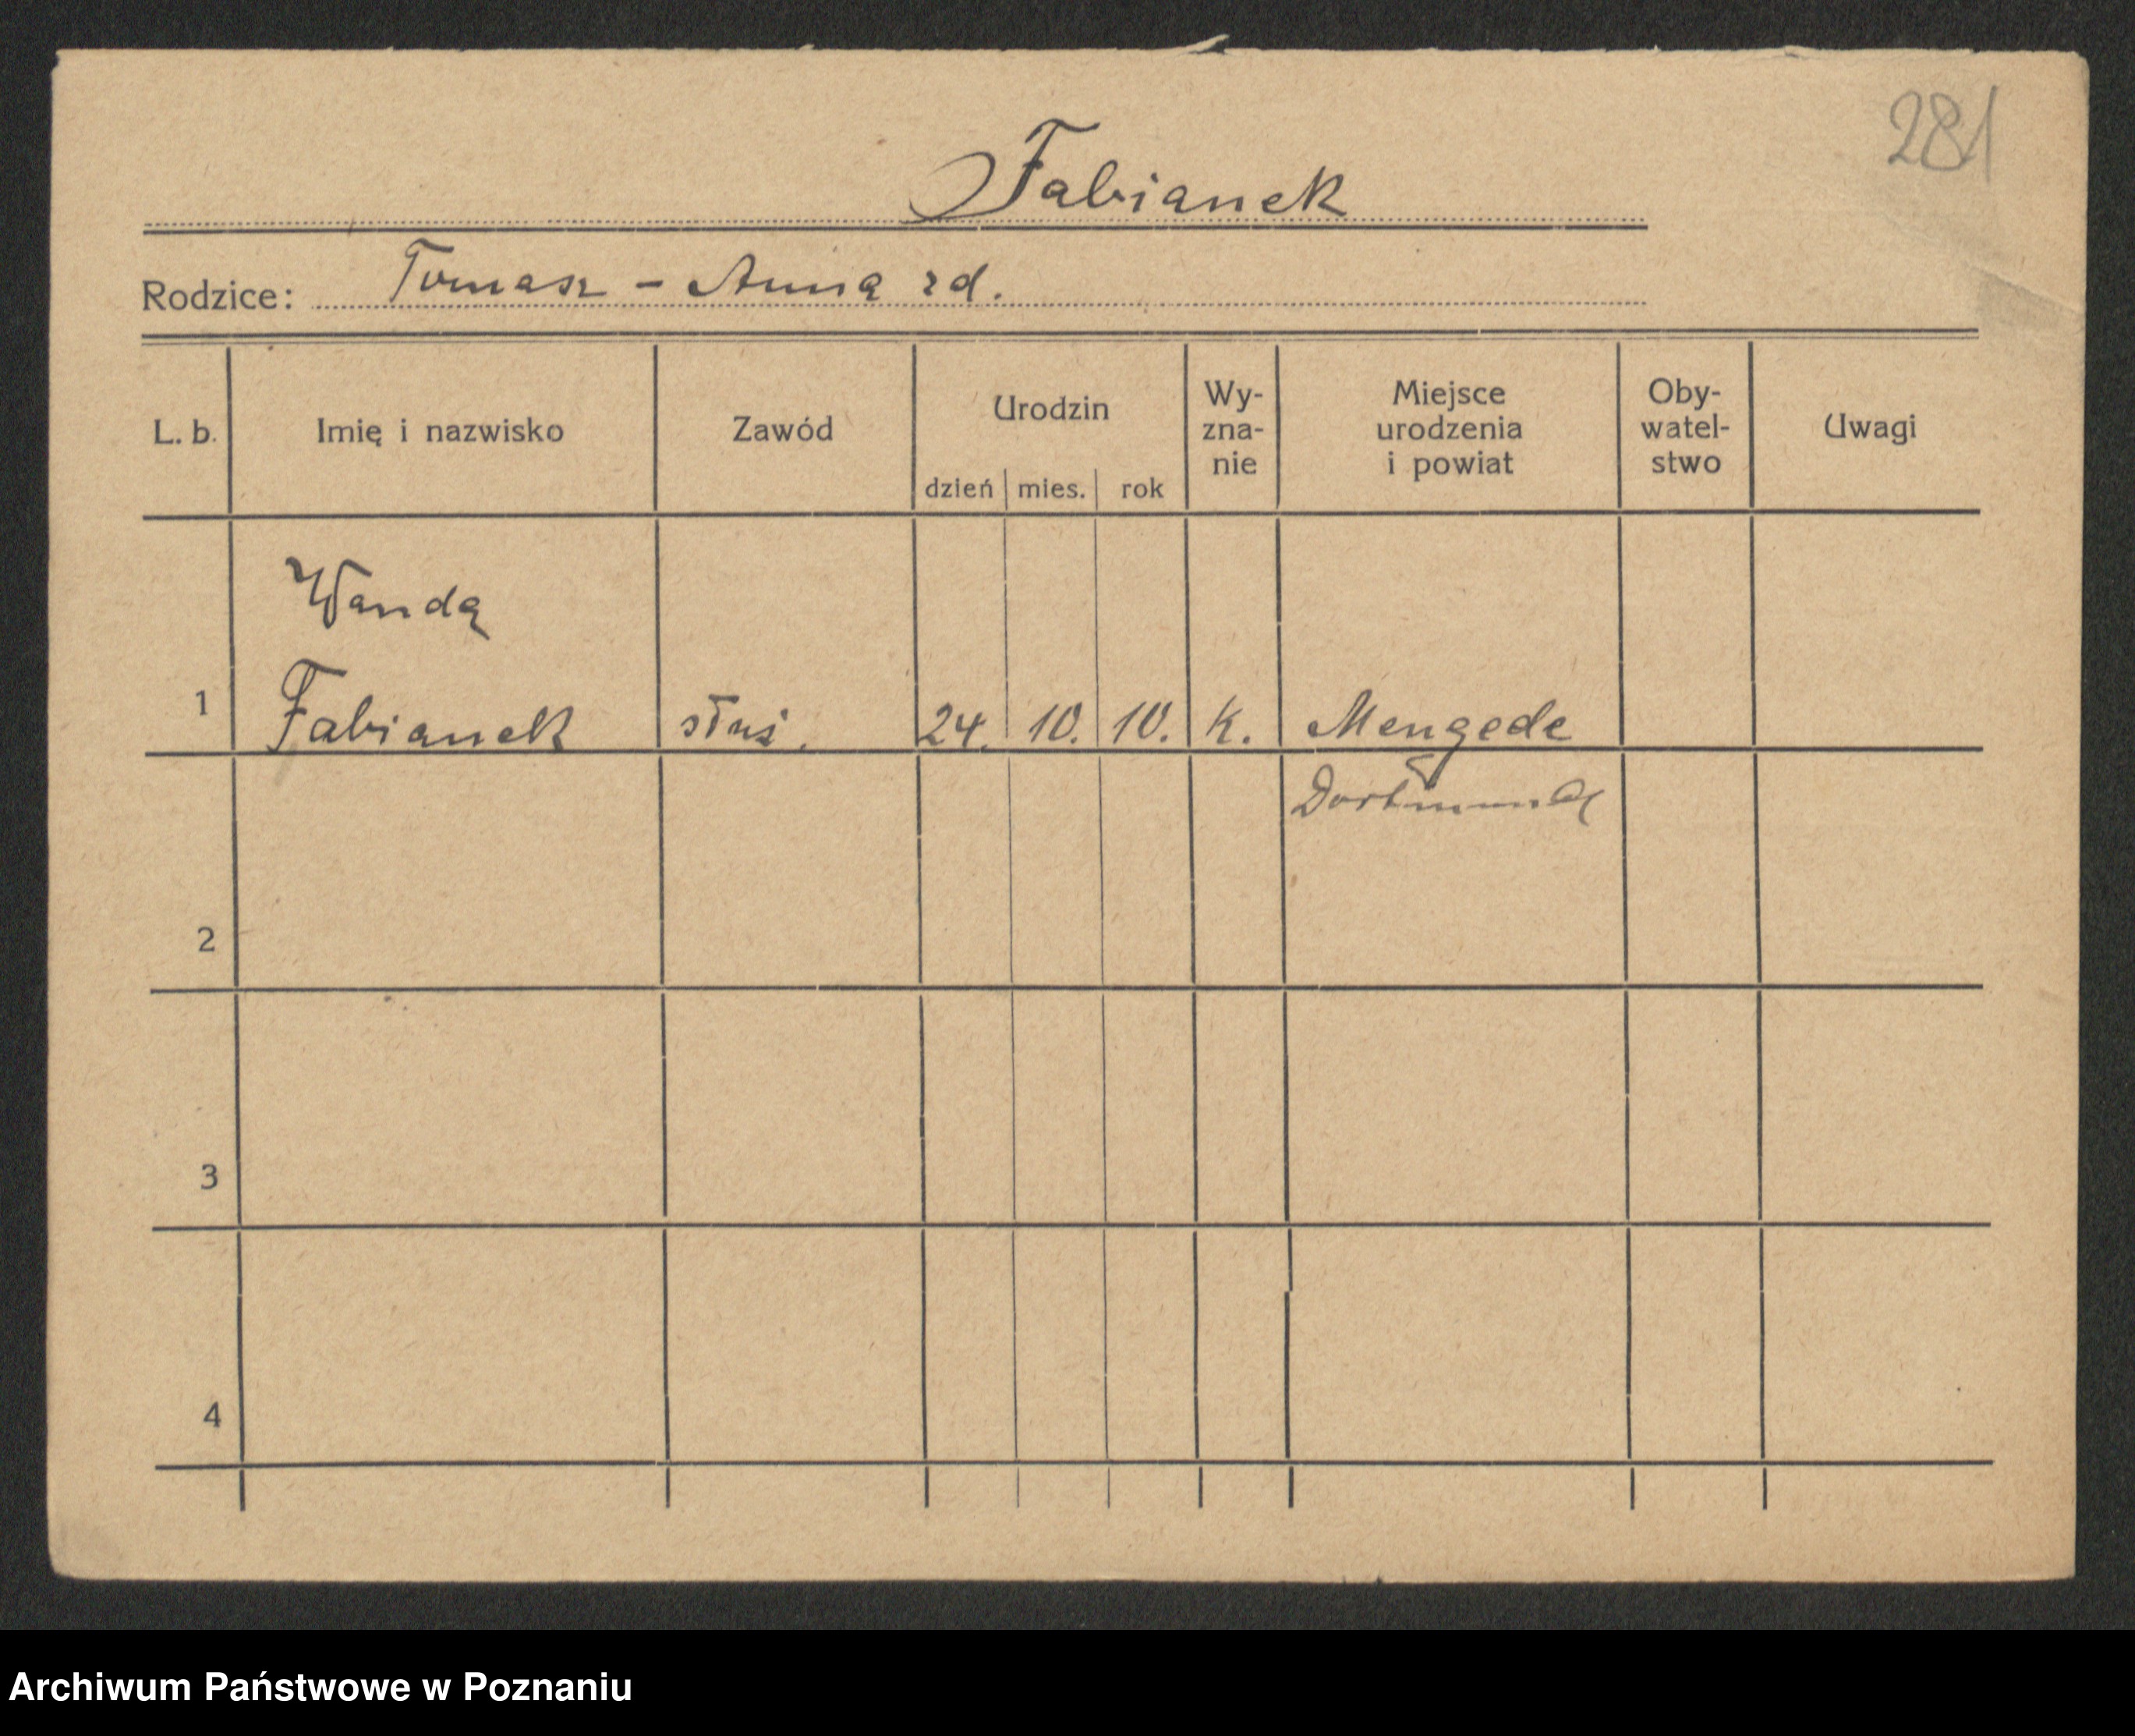 281
Fabianek
Rodzice: Tomasz - Anna zd.
L. b. Imię i nazwisko Zawód Urodzin dzień mies. rok Wy-zna-nie Miejsce urodzenia i powiat Oby-watel-stwo Uwagi
Wanda
1 Fabianek służ. 24. 10. 10. k. Mengede
Dortmund
2
3
4
Archiwum Państwowe w Poznaniu